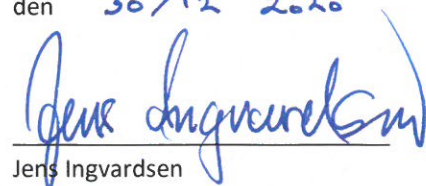 den 30/12 2020
Jens Ingvardsen
Jens Ingvardsen